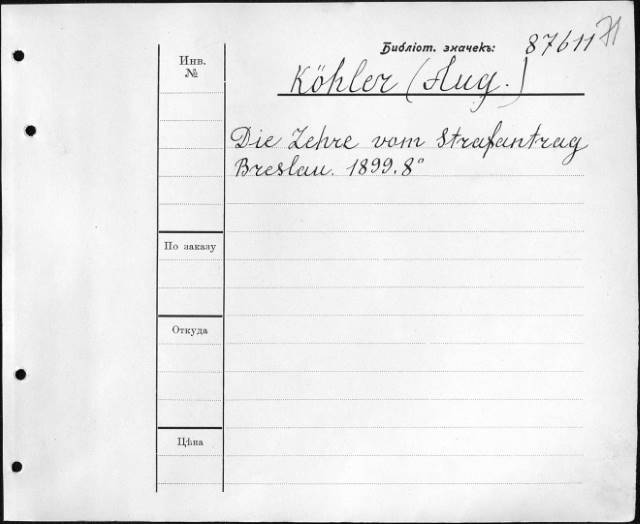 Библіот. значекъ: 87611
Инв.
№
Köhler (Aug.)
Die Lehre vom Strafantrag
Breslau. 1899. 8°
По заказу
Откуда
Цѣна